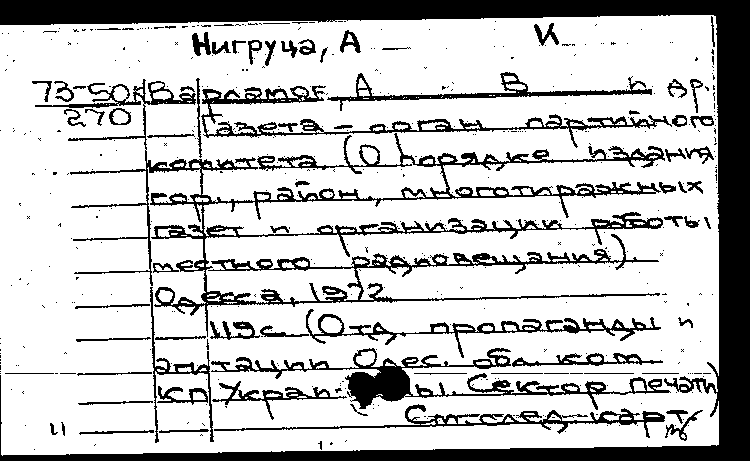 Нигруца, А К
73-50к Варламов, А В и др.
270 Газета – орган партийного
комитета. (О порядке издания
гор., район., многотиражных
газет и организации работы
местного радиовещания).
Одесса, 1972.
119с. (Отд. пропаганды и
агитации Одес. обл. ком.
КП Украи- ны. Сектор печати)
См. след. карт.